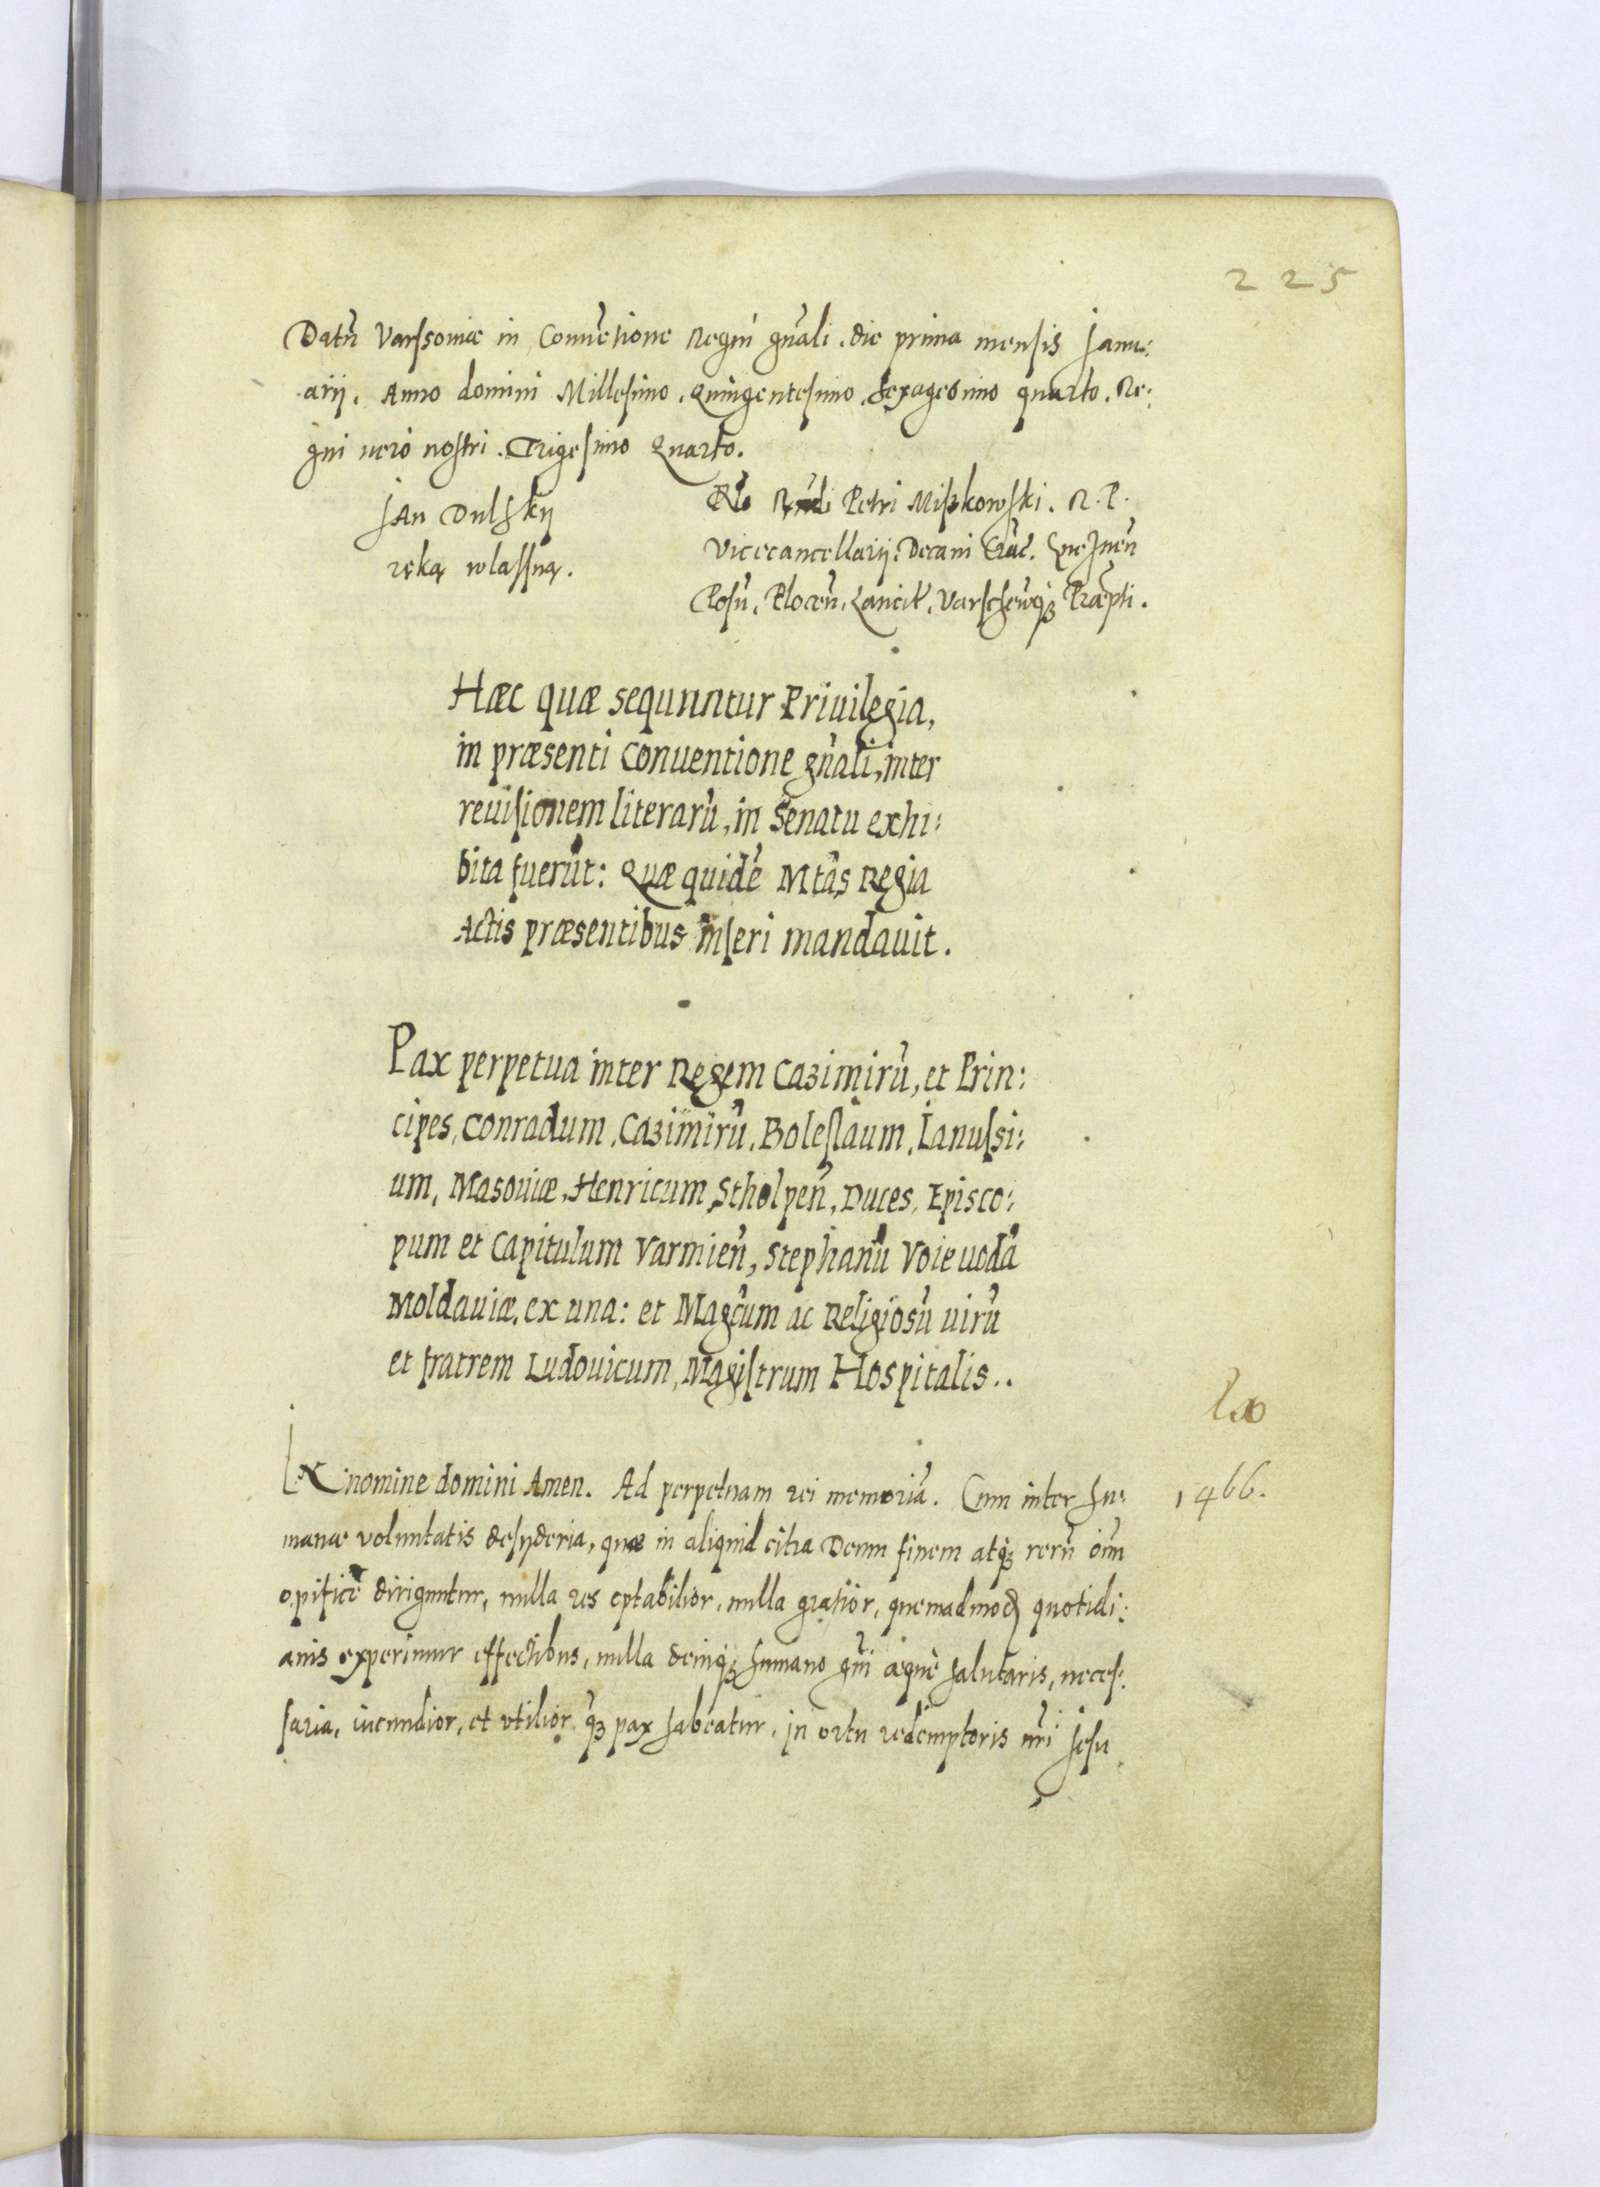 225
Datū Varssoviæ in Conuētione Regni gñali. die prima mensis Janu:
arij. Anno domini Millesimo. Quingentesimo. Sexagesimo quarto. Re:
gni uero nostri. Trigesimo Quarto.
Jan Dulskij
ręką wlassną.
Petri Miszkowski. R. P.
Vicecancellarij. Decani Crac. Gnezneñ
Posñ. Ploceñ. Lancit. Varscheuq₃ Præpti.
Hæc quæ sequuntur Priuilegia,
in præsenti Conuentione gñali, inter
reuisionem literarū, in Senatu exhi:
bita fuerūt: Quæ quidē Mtās Regia
Actis præsentibus inseri mandauit.
Pax perpetua inter Regem Cazimirū, et Prin:
cipes, Conradum, Cazimirū, Boleslaum, Ianussi:
um, Masouiæ, Henricum Stholpeñ, Duces, Episco:
pum et Capitulum Varmieñ, Stephanū Voieuodā
Moldauiæ, ex una: et Magcum ac Religiosū uirū
et fratrem Ludouicum, Magistrum Hospitalis..
1466.
In nomine domini Amen. Ad perpetuam rei memoriā. Cum inter hu:
manæ voluntatis desyderia, quæ in aliquid citra Deum finem atq₃ rerū oīm
opificē diriguntur, nulla res optabilior, nulla gratior, quemadmod quotidi:
anis experimur effectibus, nulla deniq₃ humano gñi æquè salutaris, neces:
saria, iucundior, et vtilior q̄₃ pax habeatur. in ortu redemptoris nr̄i Jesu